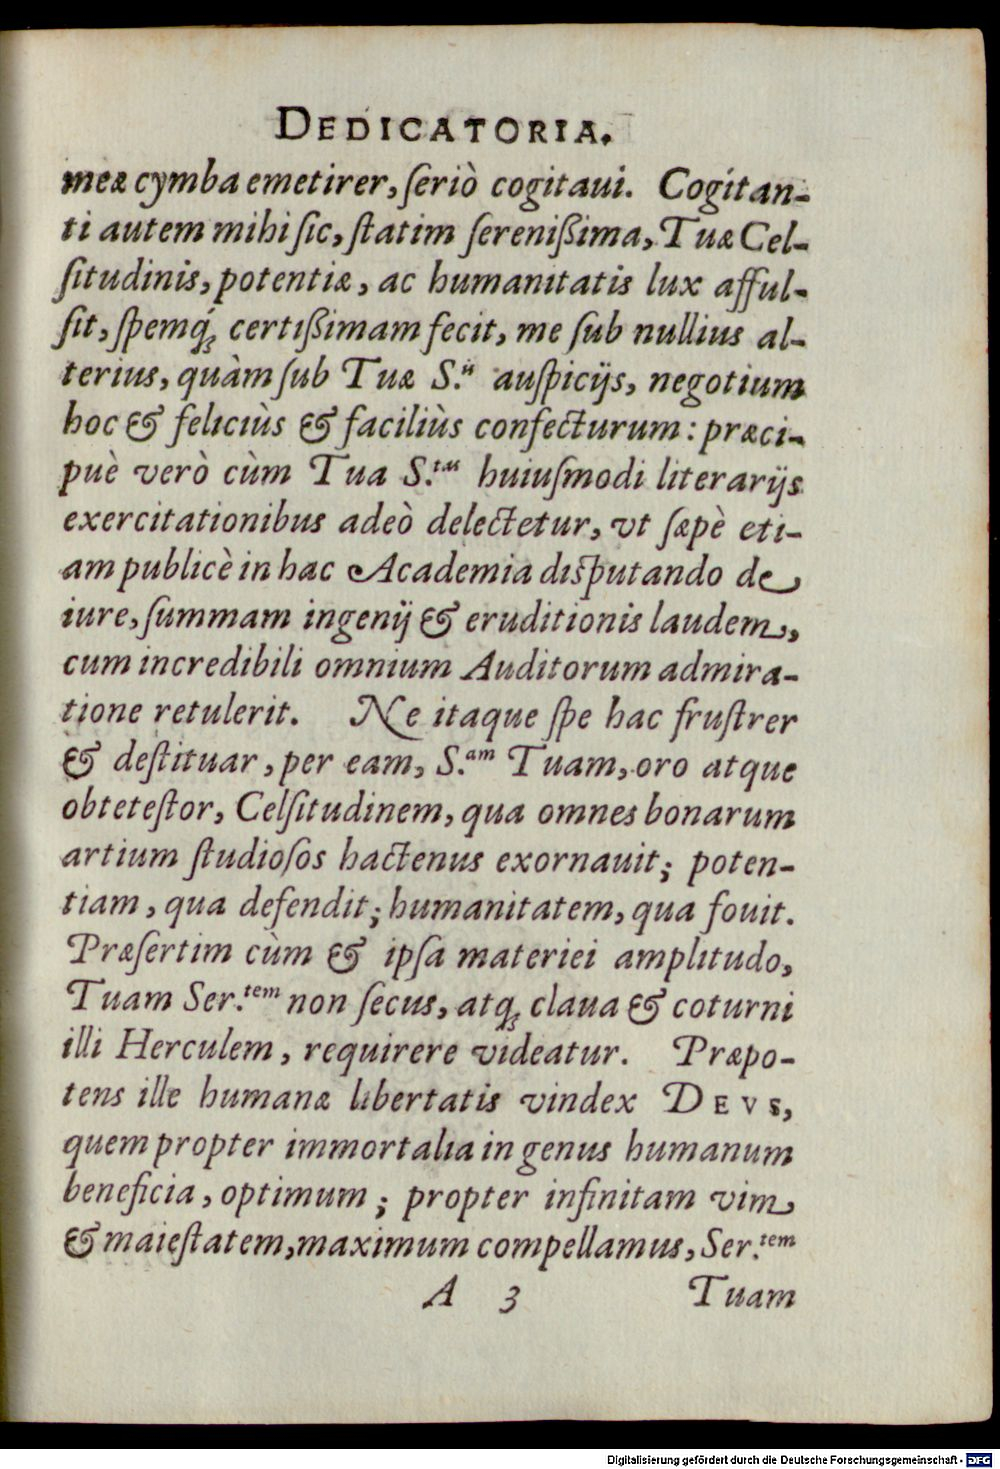 DEDICATORIA.
meæ cymba emetirer, ſeriò cogitaui. Cogitan-
ti autem mihi ſic, ſtatim ſereniſsima, Tuæ Cel-
ſitudinis, potentiæ, ac humanitatis lux afful-
ſit, ſpemq́; certiſsimam fecit, me ſub nullius al-
terius, quàm ſub Tuæ S.ᵗⁱˢ auſpicijs, negotium
hoc & feliciùs & faciliùs confecturum: præci-
puè verò cùm Tua S.ᵗᵃˢ huiuſmodi literarijs
exercitationibus adeò delectetur, vt ſæpè eti-
am publicè in hac Academia diſputando de
iure, ſummam ingenij & eruditionis laudem,
cum incredibili omnium Auditorum admira-
tione retulerit. Ne itaque ſpe hac fruſtrer
& deſtituar, per eam, S.ᵃᵐ Tuam, oro atque
obteteſtor, Celſitudinem, qua omnes bonarum
artium ſtudioſos hactenus exornauit; poten-
tiam, qua defendit; humanitatem, qua fouit.
Præſertim cùm & ipſa materiei amplitudo,
Tuam Ser.ᵗᵉᵐ non ſecus, atq; claua & coturni
illi Herculem, requirere videatur. Præpo-
tens ille humanæ libertatis vindex DEVS,
quem propter immortalia in genus humanum
beneficia, optimum; propter infinitam vim
& maieſtatem, maximum compellamus, Ser.ᵗᵉᵐ
A 3 Tuam
Digitalisierung gefördert durch die Deutsche Forschungsgemeinschaft - DFG